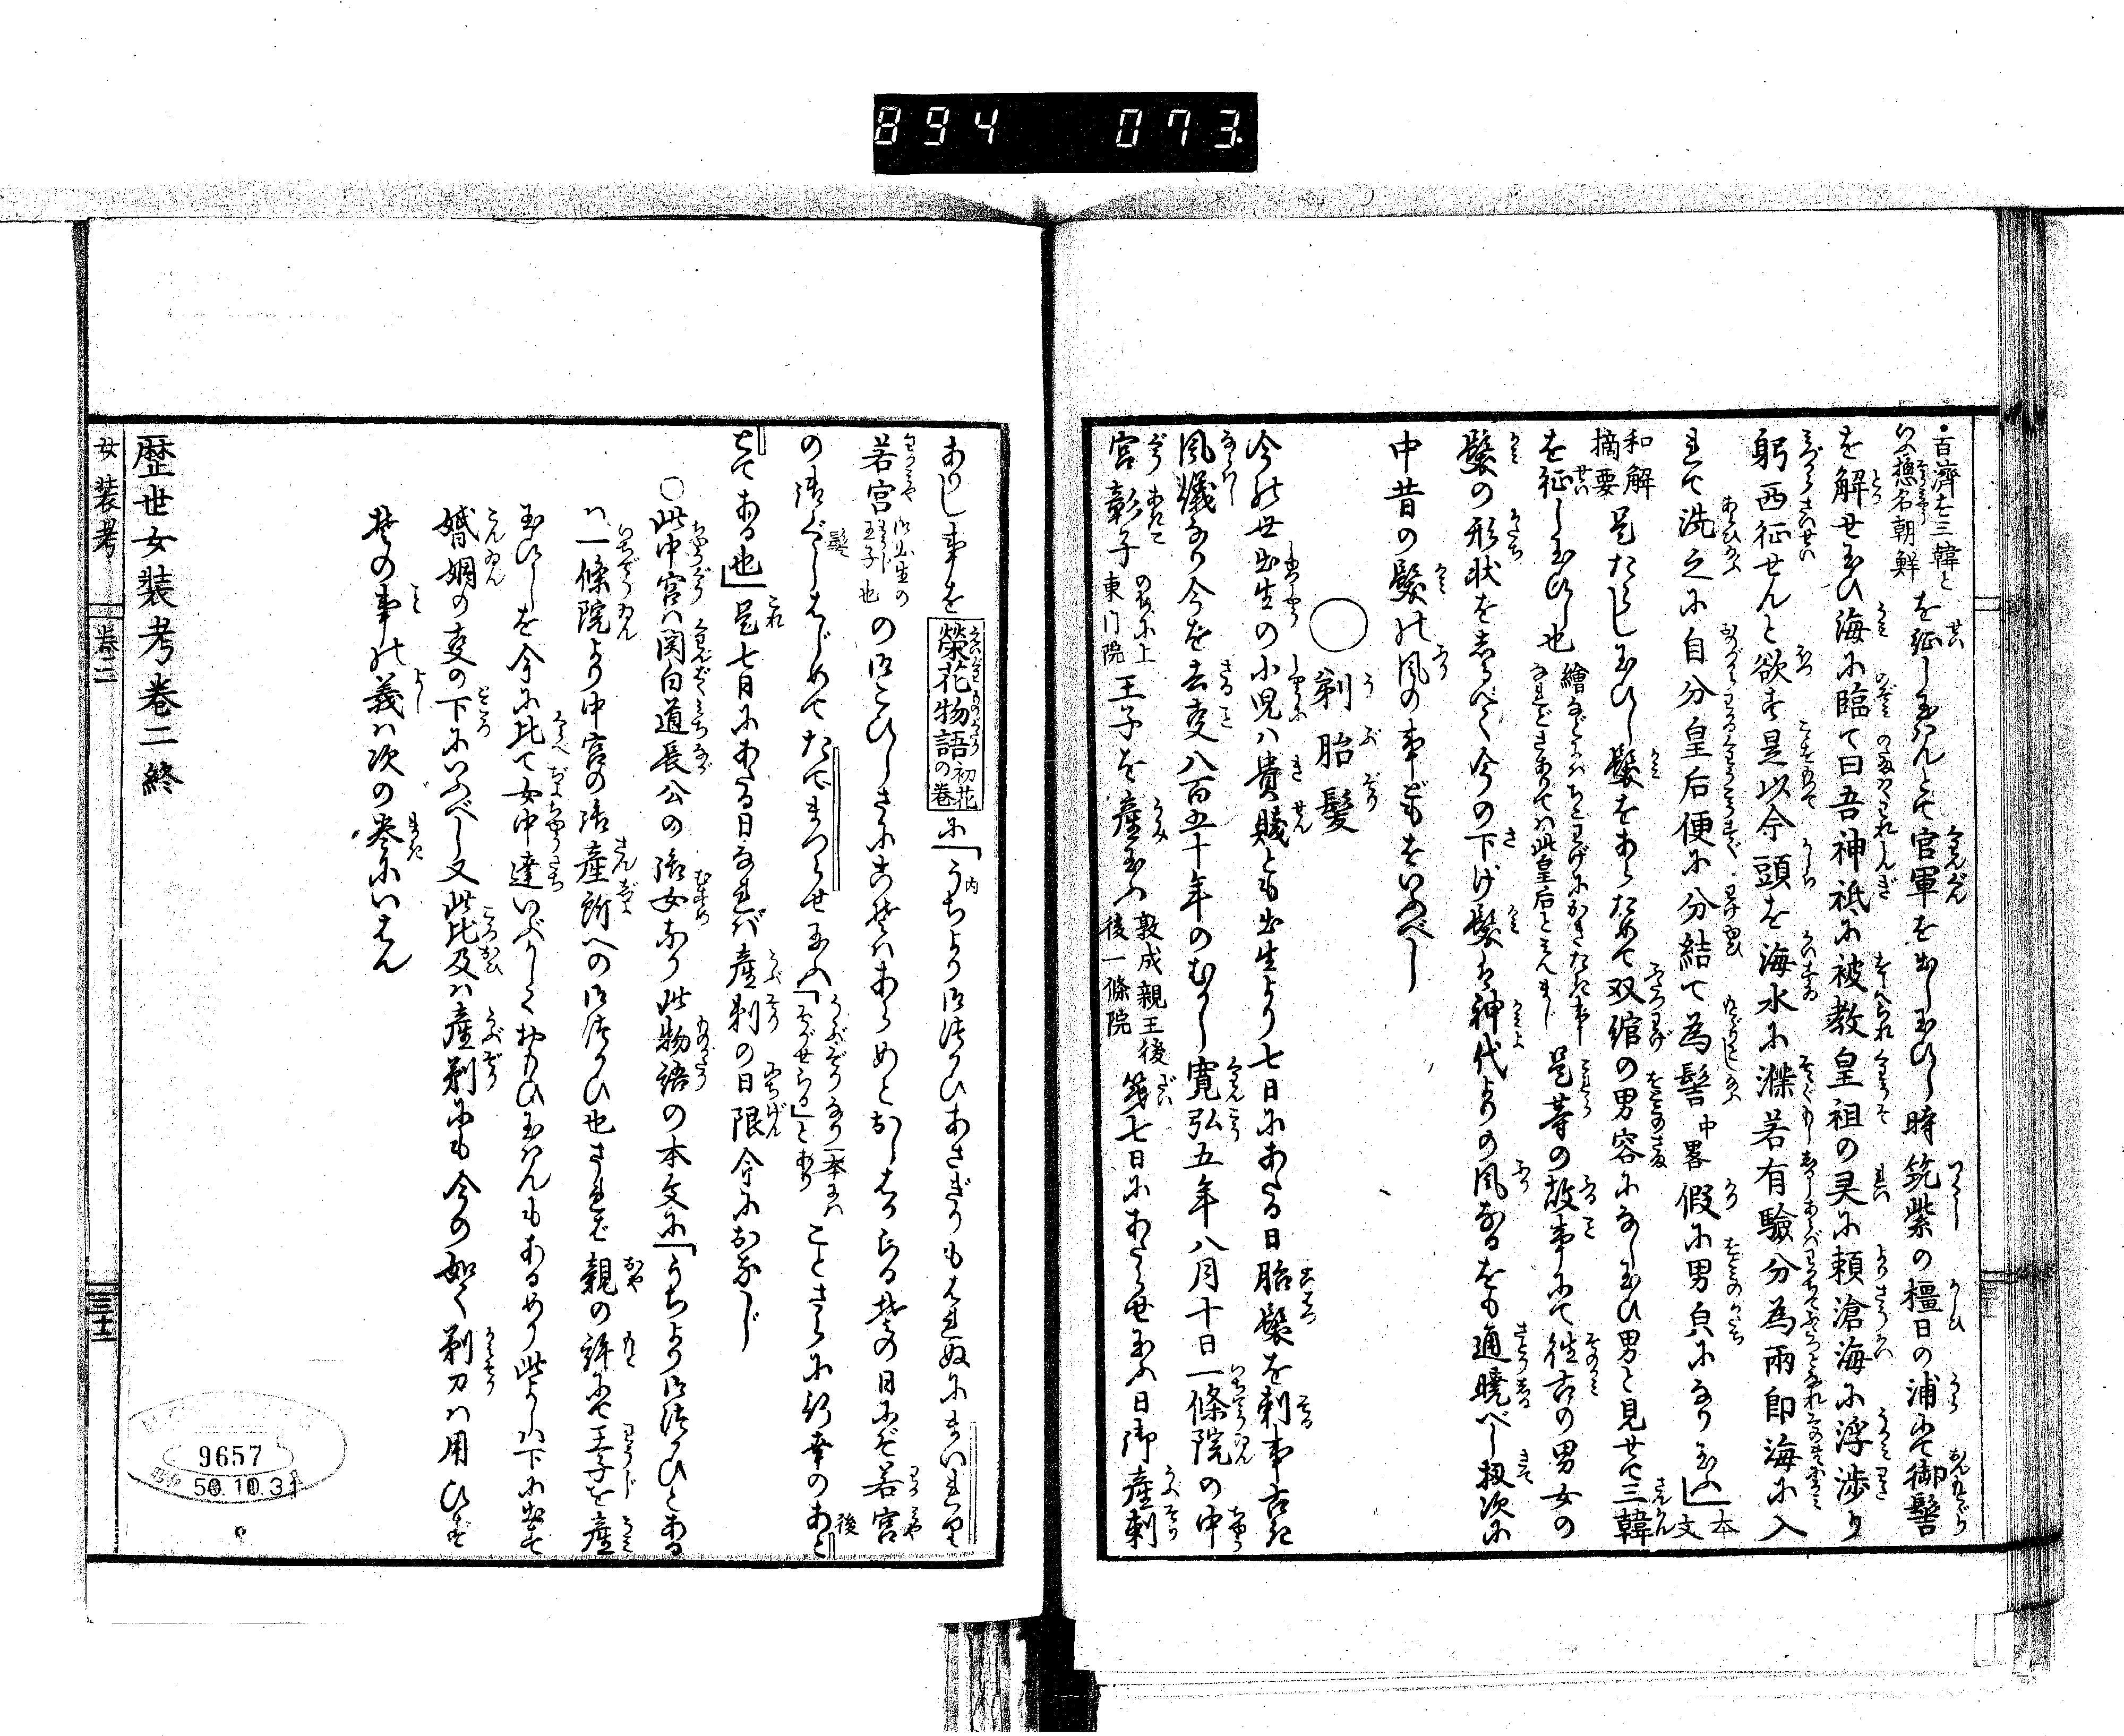 894 073
・百済を三韓と
いふ惣名朝鮮
を征し玉はんとて官軍を出し玉ひし時筑紫の橿日の浦にて御髻
を解せ玉ひ海に臨て曰吾神祇に被教皇祖の灵に頼滄海に浮渉り
躬西征せんと欲す是以今頭を海水に滌若有驗分為両即海に入
玉て洗之に自分皇后便に分結て為髻中畧假に男皃になり玉ふ」本文
和解
摘要
是たゝし玉ひし髪をあらためて双綰の男容になし玉ひ男と見せて三韓
を征し玉ひし也
是等の故事にて往古の男女の
髪の形状をしるべく今の下げ髪は神代よりの風なるをも通曉べし扨次に
中昔の髪の風の事どもをいふべし
○剃胎髮
今の世出生の小児は貴賤とも出生より七日にあたる日胎髪を剃事古き
風儀なり今を去事八百五十年のむかし寛弘五年八月十日一條院の中
宮彰子
のちに上
東门院
王子を産玉ふ
敦成親王後
後一條院
第七日にあたらせ玉ふ日御産剃
ありし事を榮花物語初花の巻に「うちより御つかひあさぎりもはれぬにまいれり
若宮
御出生の
王子也
の御こひしさにこそはあらめとおしはからる其の日にぞ若宮
の御ぐしはじめてたてまつらせ玉ふ
うぶぞりなり一本には
「そがせらる」とあり
ことさらに行幸のあと
とてある也」是七日にあたる日なれば産剃の日限今におなじ
○此中宮は関白道長公の御女なり此物語の本文に「うちより御つかひとある
は一條院より中宮の御産所への御つかひ也されば親の許にて王子を産
玉ひしを今に比て女中達いぶかしくおもひ玉はんもあるめり此よしは下に出す
婚姻の事の下にいふべし又此比及は産剃にも今の如く剃刀は用ひず
其の事の義は次の巻にいはん
歷世女装考巻二終
女装考
巻二
三十二
9657
50.10.31